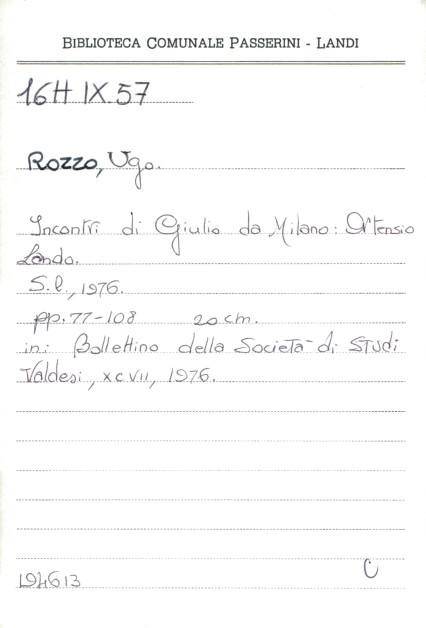 BIBLIOTECA COMUNALE PASSERINI - LANDI
16H IX.57
Rozzo, Ugo.
Incontri di Giulio da Milano: Ortensio
Lando.
S.l., 1976.
pp. 77-108 20 cm.
in: Bollettino della Società di Studi
Valdesi, XCVII, 1976.
194613
C